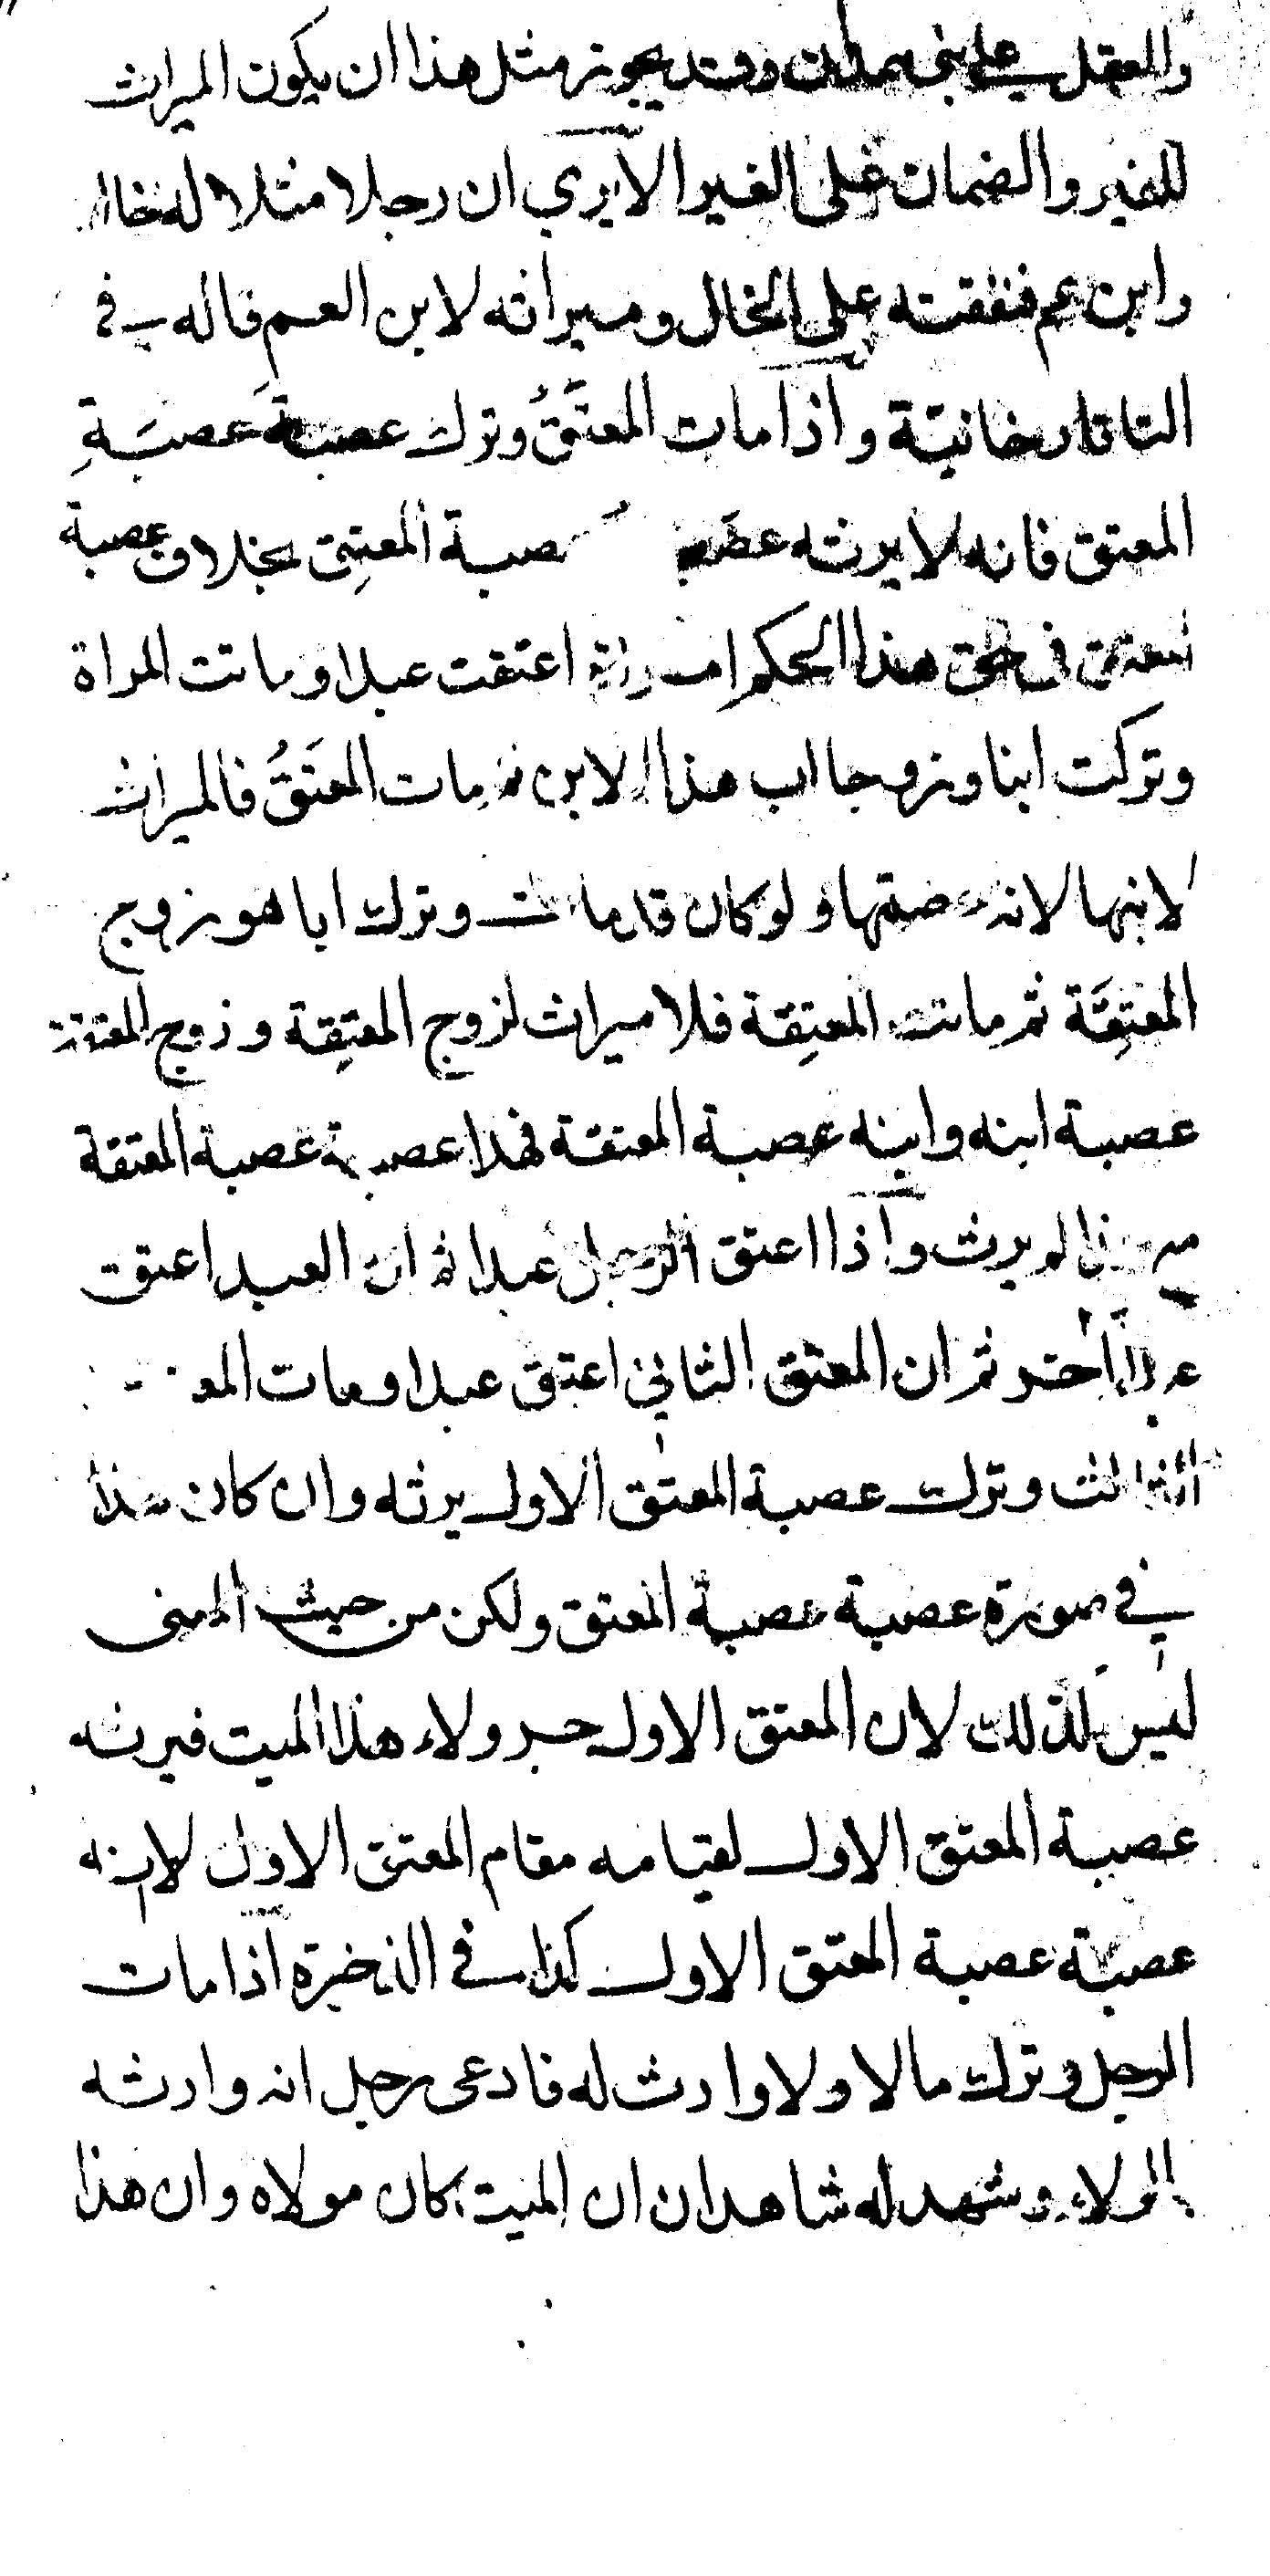 والعقل على بني همدان وقد يجوز مثل هذا ان يكون الميراث
للغير والضمان على الغير الا يري ان رجلا مثلا له خال
وابن عم فنفقته على الخال وميراثه لابن العم قاله في
التاتارخانيّة واذا مات المعتَقُ وترك عصبةَ عصبَةِ
المعتق فانه لا يرثه عصبة المعتِق بخلاف عصبة
المعتق في حق هذا الحكم امراة اعتقت عبدا وماتت المراة
وتركت ابنا وزوجا اب هذا الابن ثم مات المعتَقُ فالميراث
لابنها لانه عصبتها ولو كان قد مات وترك ابا هو زوج
المعتِقَة ثم ماتت المعتِقة فلا ميراث لزوج المعتِقة وزوج المعتقة
عصبة ابنه وابنه عصبة المعتقة فهذا عصبة عصبة المعتقة
لم يرث واذا اعتق الرجل عبدا ثم ان العبد اعتق
عبدا اخر ثم ان المعتق الثاني اعتق عبدا ومات
الثالث وترك عصبة المعتق الاول يرثه وان كان هذا
في صورة عصبة عصبة المعتق ولكن من حيث المعنى
ليس كذلك لان المعتق الاول جر ولاء هذا الميت فيرثه
عصبة المعتق الاول لقيامه مقام المعتق الاول لا انه
عصبة عصبة المعتق الاول كذا في الذخيرة اذا مات
الرجل وترك مالا ولا وارث له فادعى رجل انه وارثه
بالولاء وشهد له شاهدان ان الميت كان مولاه وان هذا